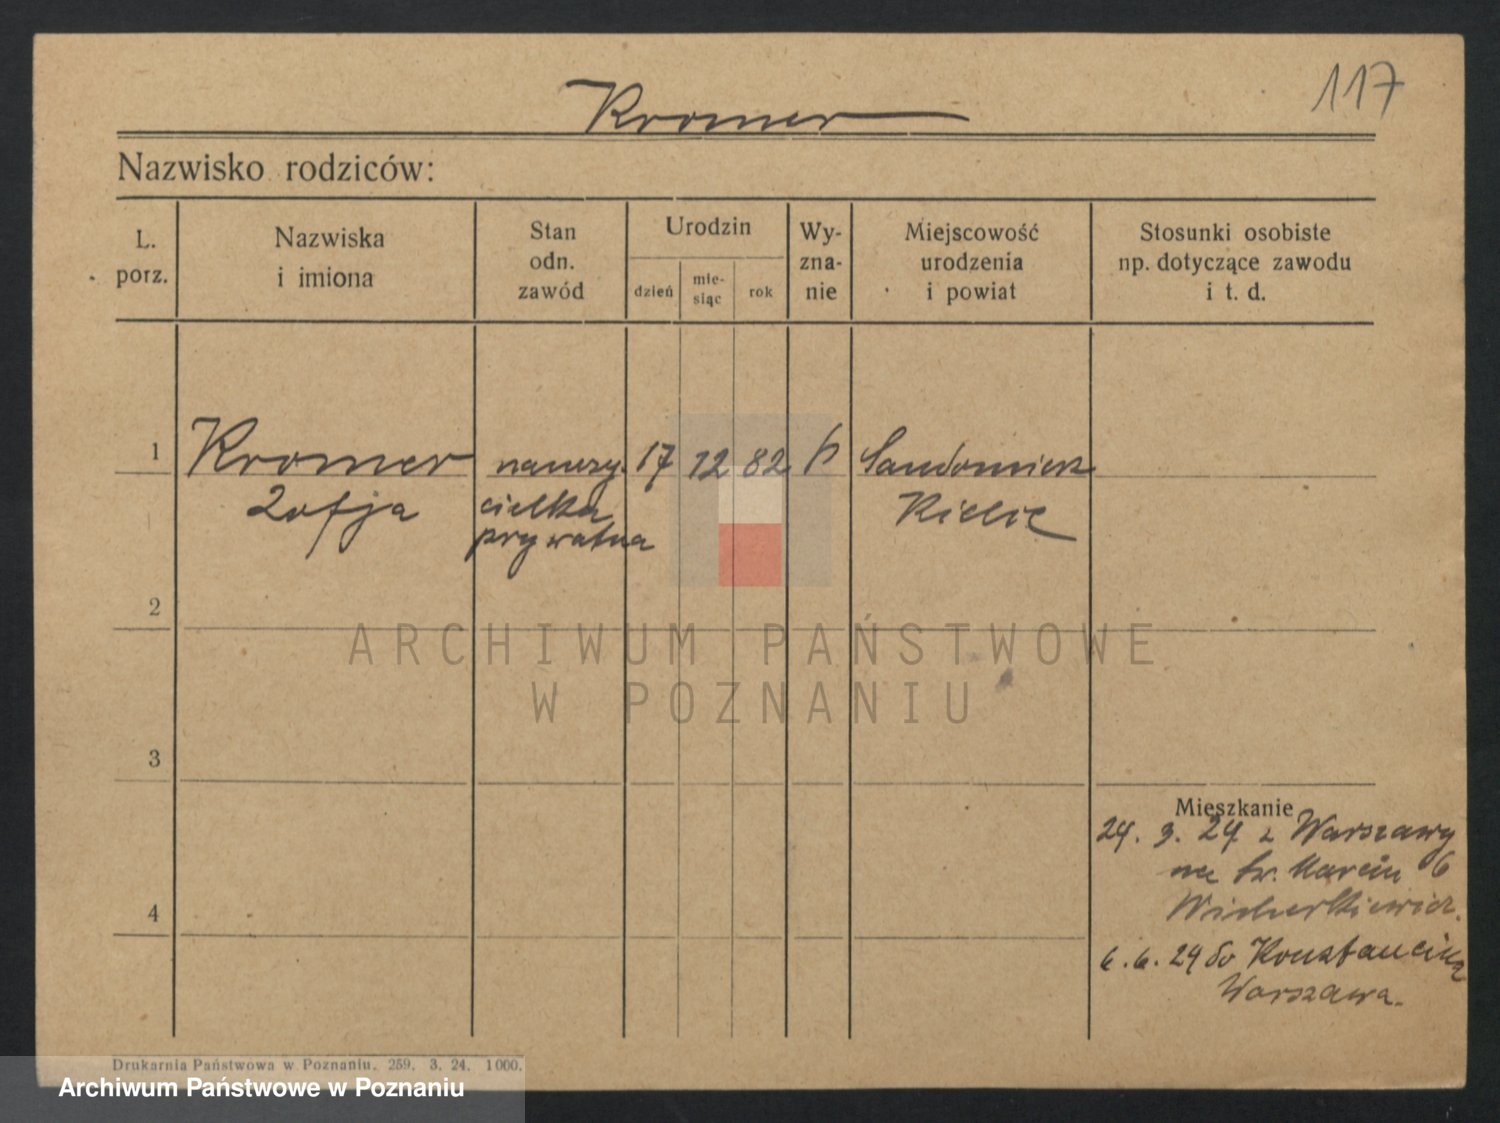 117
Kromer
Nazwisko rodziców:
L. porz.
Nazwiska i imiona
Stan odn. zawód
Urodzin
dzień
mie-siąc
rok
Wy-zna-nie
Miejscowość urodzenia i powiat
Stosunki osobiste np. dotyczące zawodu i t. d.
1 Kromer nauczy- 17 12 82 Sandomierz
Zofja cielka Kielce
prywatna
2
ARCHIWUM PAŃSTWOWE
W POZNANIU
3
Mieszkanie
24. 3. 24 z Warszawy
na Św. Marcin 6
4 Wicherkiewicz.
6. 6. 24 do Konstancina
Warszawa.
Drukarnia Państwowa w Poznaniu. 259. 3. 24. 1000.
Archiwum Państwowe w Poznaniu